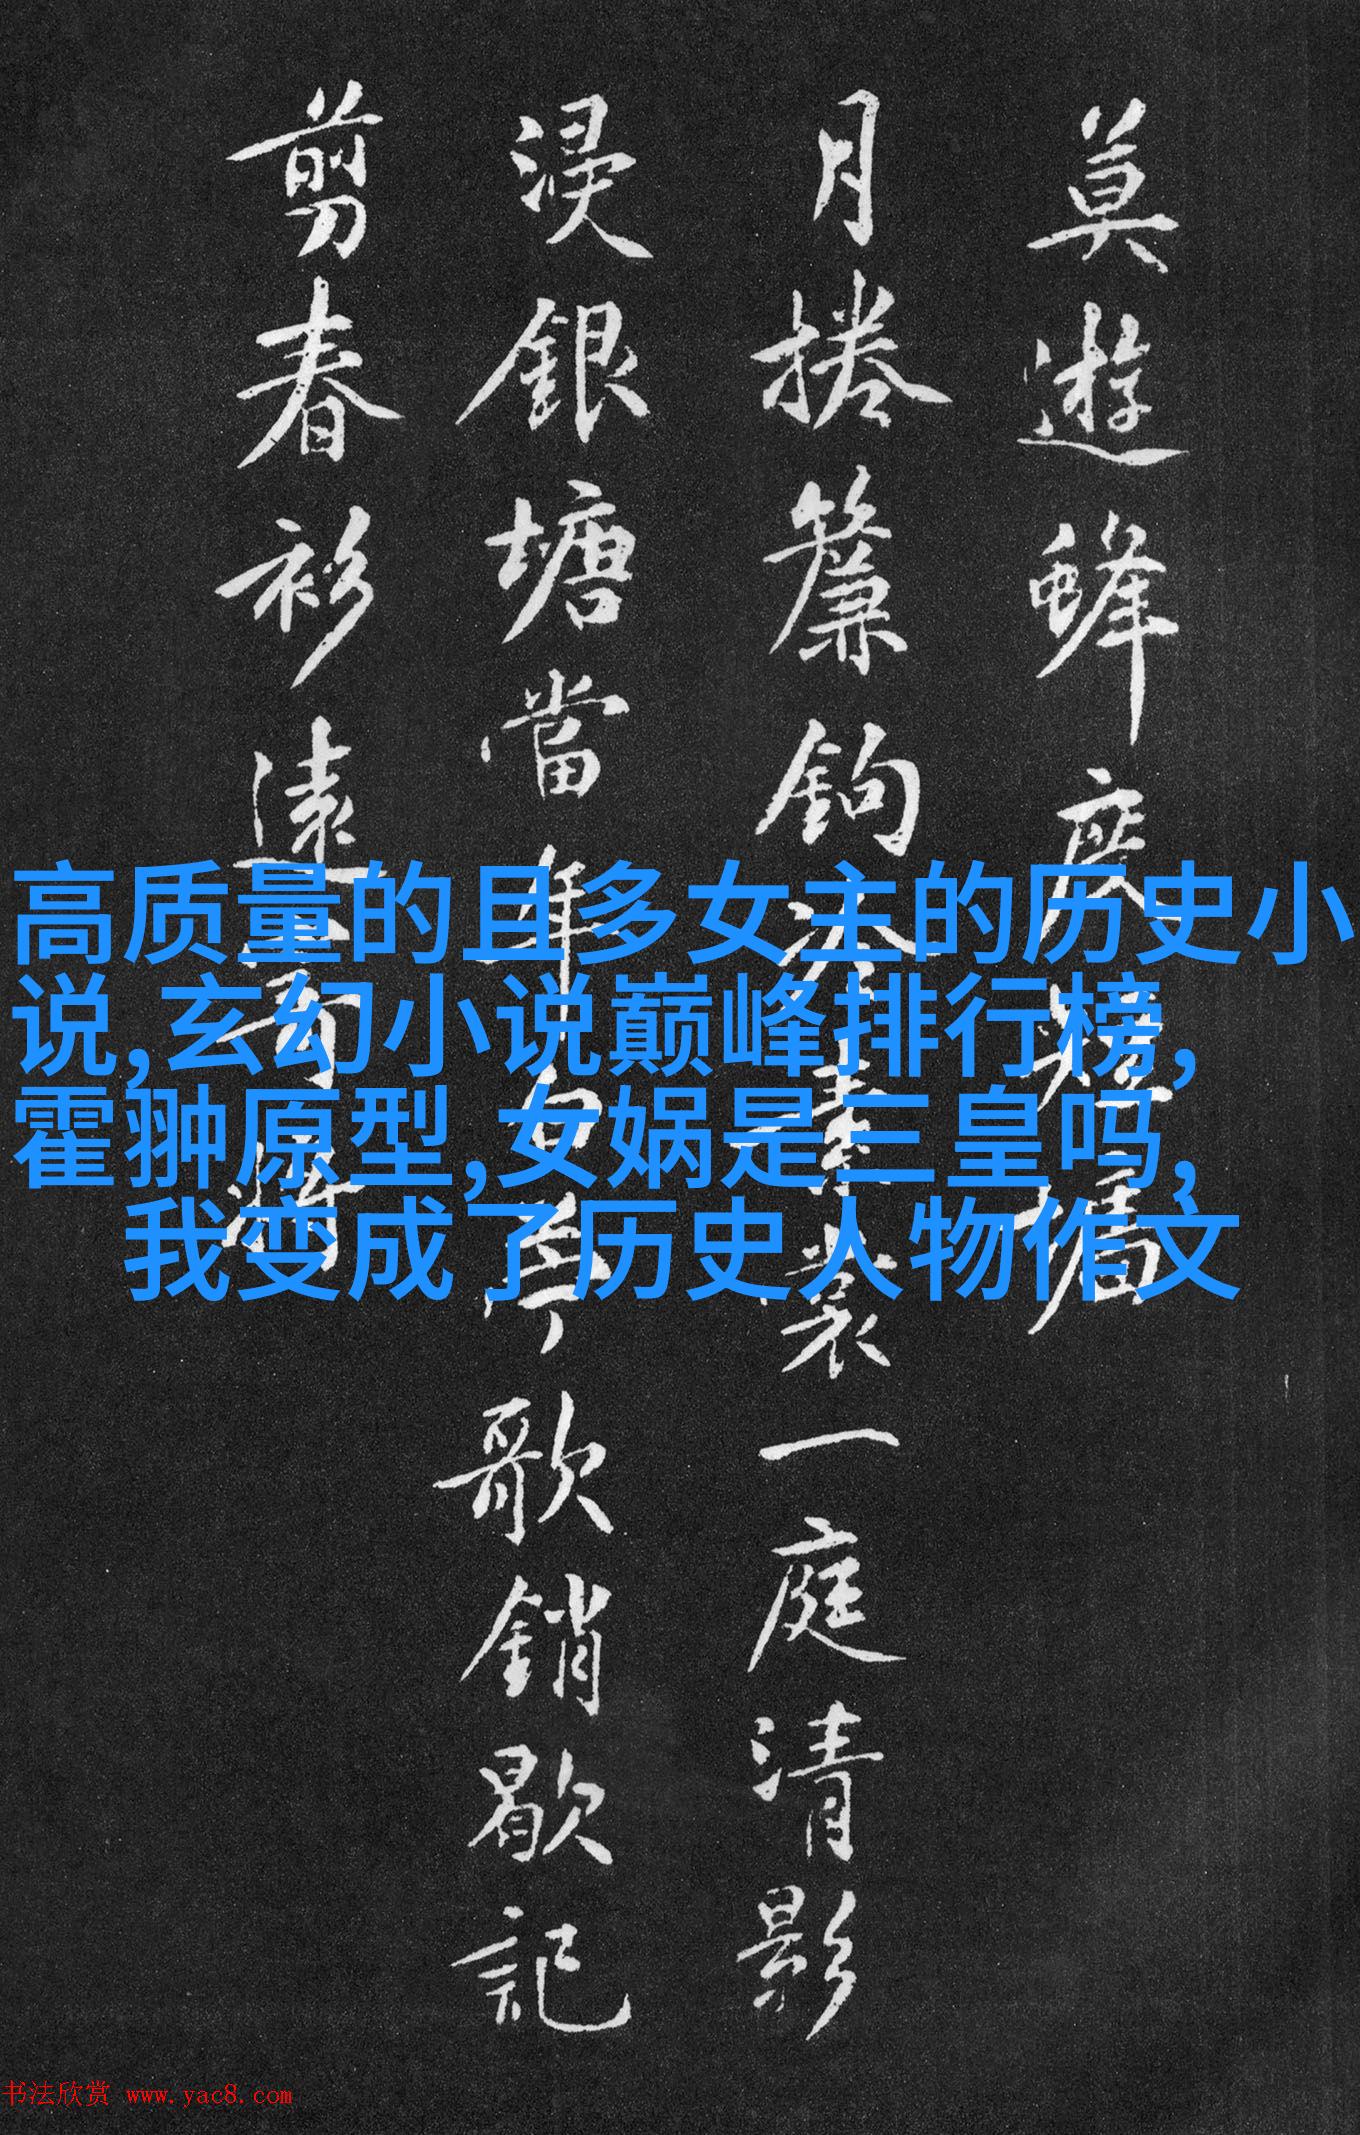 莫遊蜂度短墻
月捲簾鉤冷素裳一庭清影
浸銀塘當年白苧歌銷歇記
剪春衫遠寄將
高质量的且多女主的历史小
说,玄幻小说巅峰排行榜,
霍翀原型,女娲是三皇吗,
我变成了历史人物作文
书法欣赏 www.yac8.com